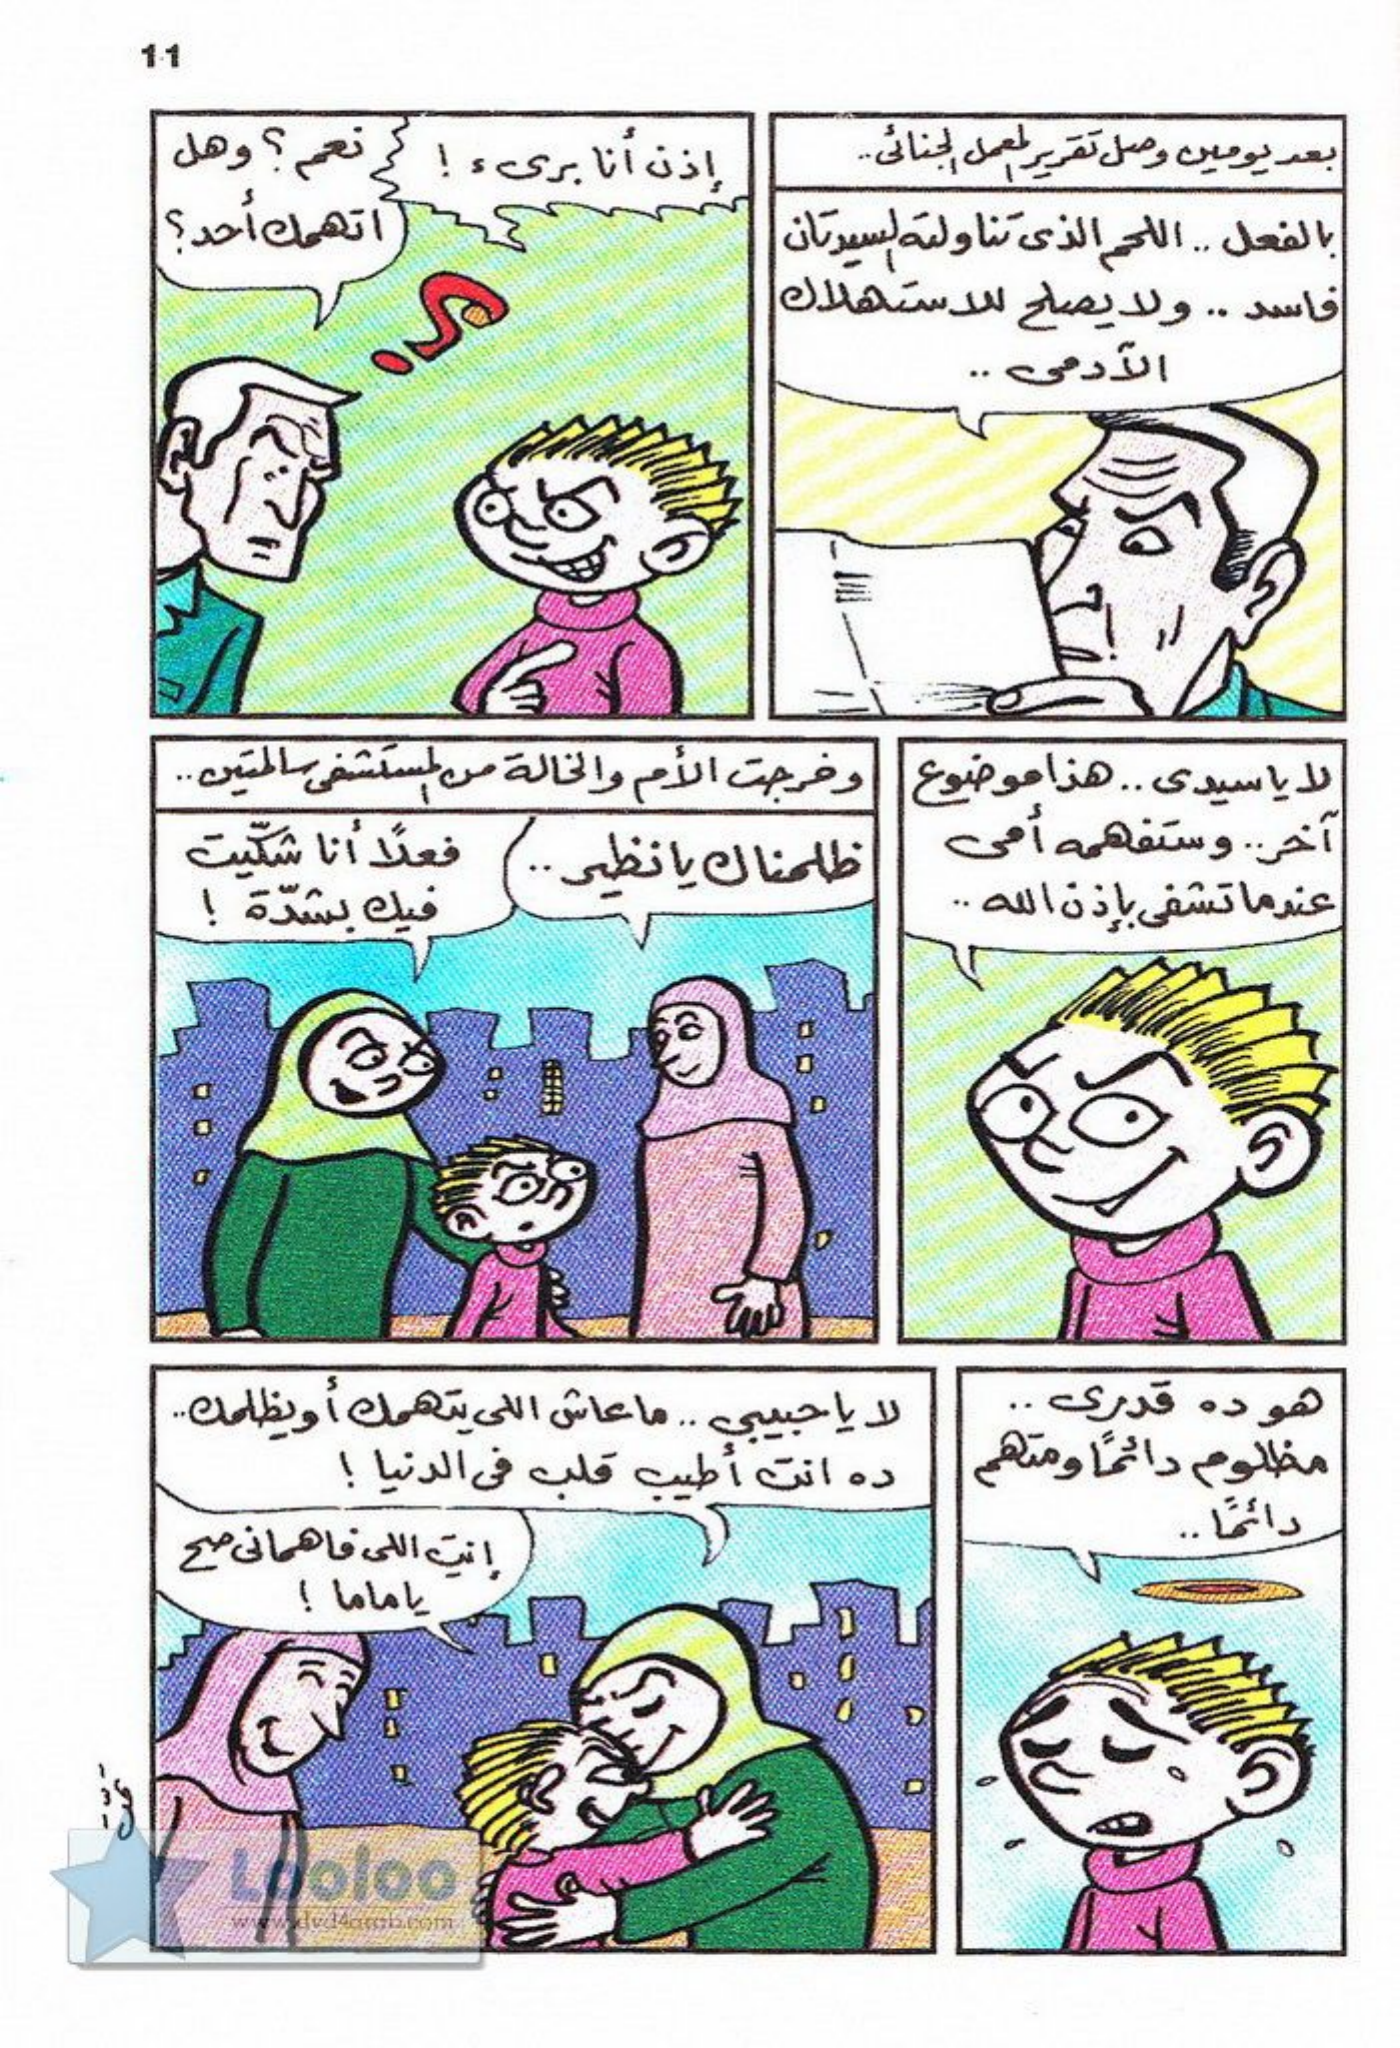 11
بعد يومين وصل تقرير المعمل الجنائى..
بالفعل .. اللحم الذى تناولته السيدتان
فاسد .. ولا يصلح للاستهلاك
الآدمى ..
إذن أنا برىء !
نعم ؟ وهل
اتهمك أحد ؟
لا يا سيدى .. هذا موضوع
آخر .. وستفهمه أمى
عندما تشفى بإذن الله ..
وخرجت الأم والخالة من المستشفى سالمتين ..
ظلمناك يا نظير ..
فعلًا أنا شكّيت
فيك بشدّة !
هو ده قدرى ..
مظلوم دائمًا ومتهم
دائمًا ..
لا يا حبيبي .. ما عاش اللى يتهمك أو يظلمك ..
ده انت أطيب قلب فى الدنيا !
إنتِ اللى فاهمانى صح
يا ماما !
Looloo
www.dvd4arab.com